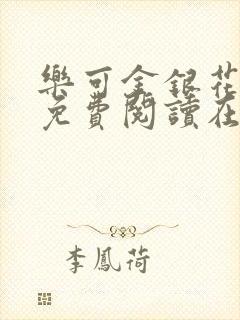 樂可金銀花
免費閱讀在
李鳳荷